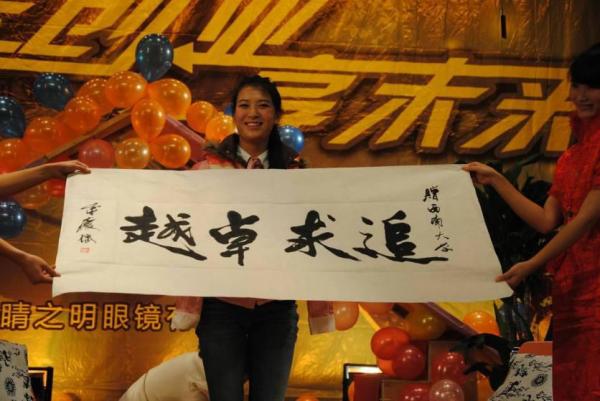 创业
享未来
贈西南大学
追求卓越
睛之明眼镜